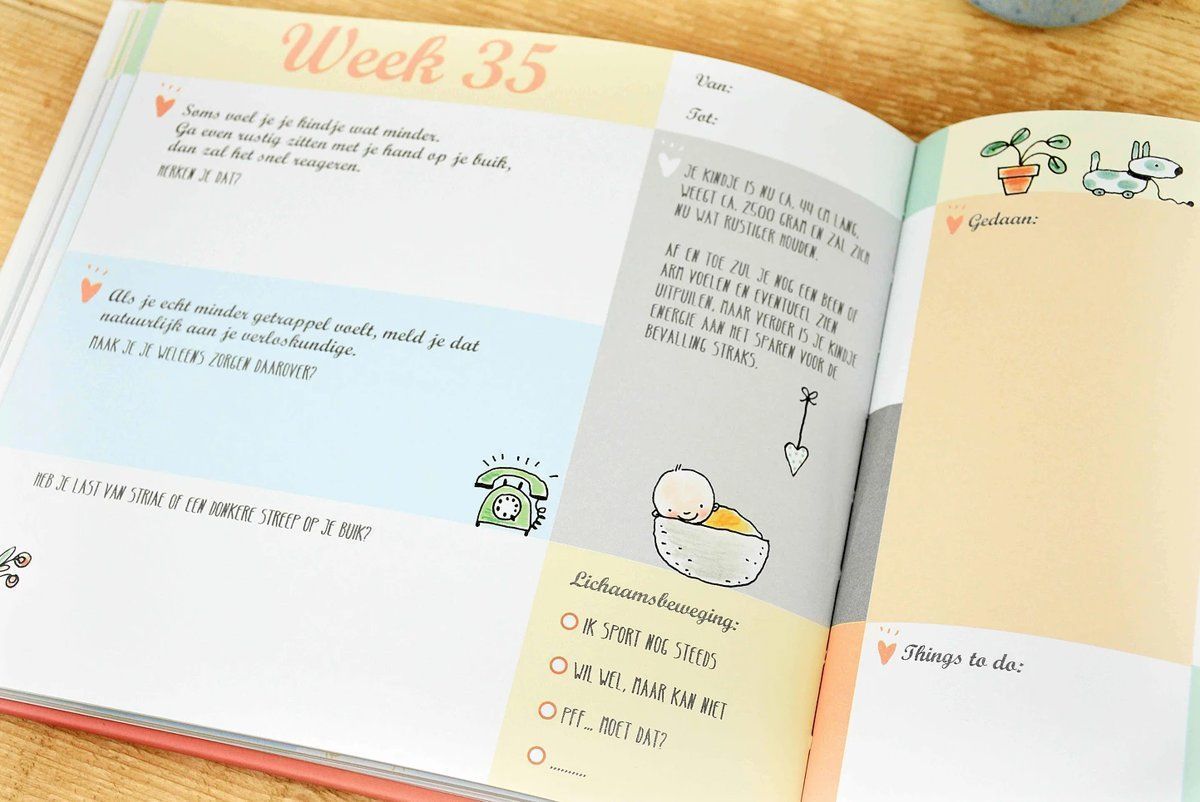 Week 35
Soms voel je je kindje wat minder.
Ga even rustig zitten met je hand op je buik,
dan zal het snel reageren.
MERKEN JE DAT?
Als je echt minder getrappel voelt, meld je dat
natuurlijk aan je verloskundige.
MAAK JE JE WELEENS ZORGEN DAAROVER?
HEB JE LAST VAN STRIAE OF EEN DONKERE STREEP OP JE BUIK?
Van:
Tot:
JE KINDJE IS NU CA. 44 CM LANG,
WEEGT CA. 2500 GRAM EN ZAL ZICH
NU WAT RUSTIGER HOUDEN.
AF EN TOE ZUL JE NOG EEN BEEN OF
ARM VOELEN EN EVENTUEEL ZIEN
UITPUILEN, MAAR VERDER IS JE KINDJE
ENERGIE AAN HET SPAREN VOOR DE
BEVALLING STRAKS.
Lichaamsbeweging:
IK SPORT NOG STEEDS
WIL WEL, MAAR KAN NIET
PFF... MOET DAT?
..........
Gedaan:
Things to do: